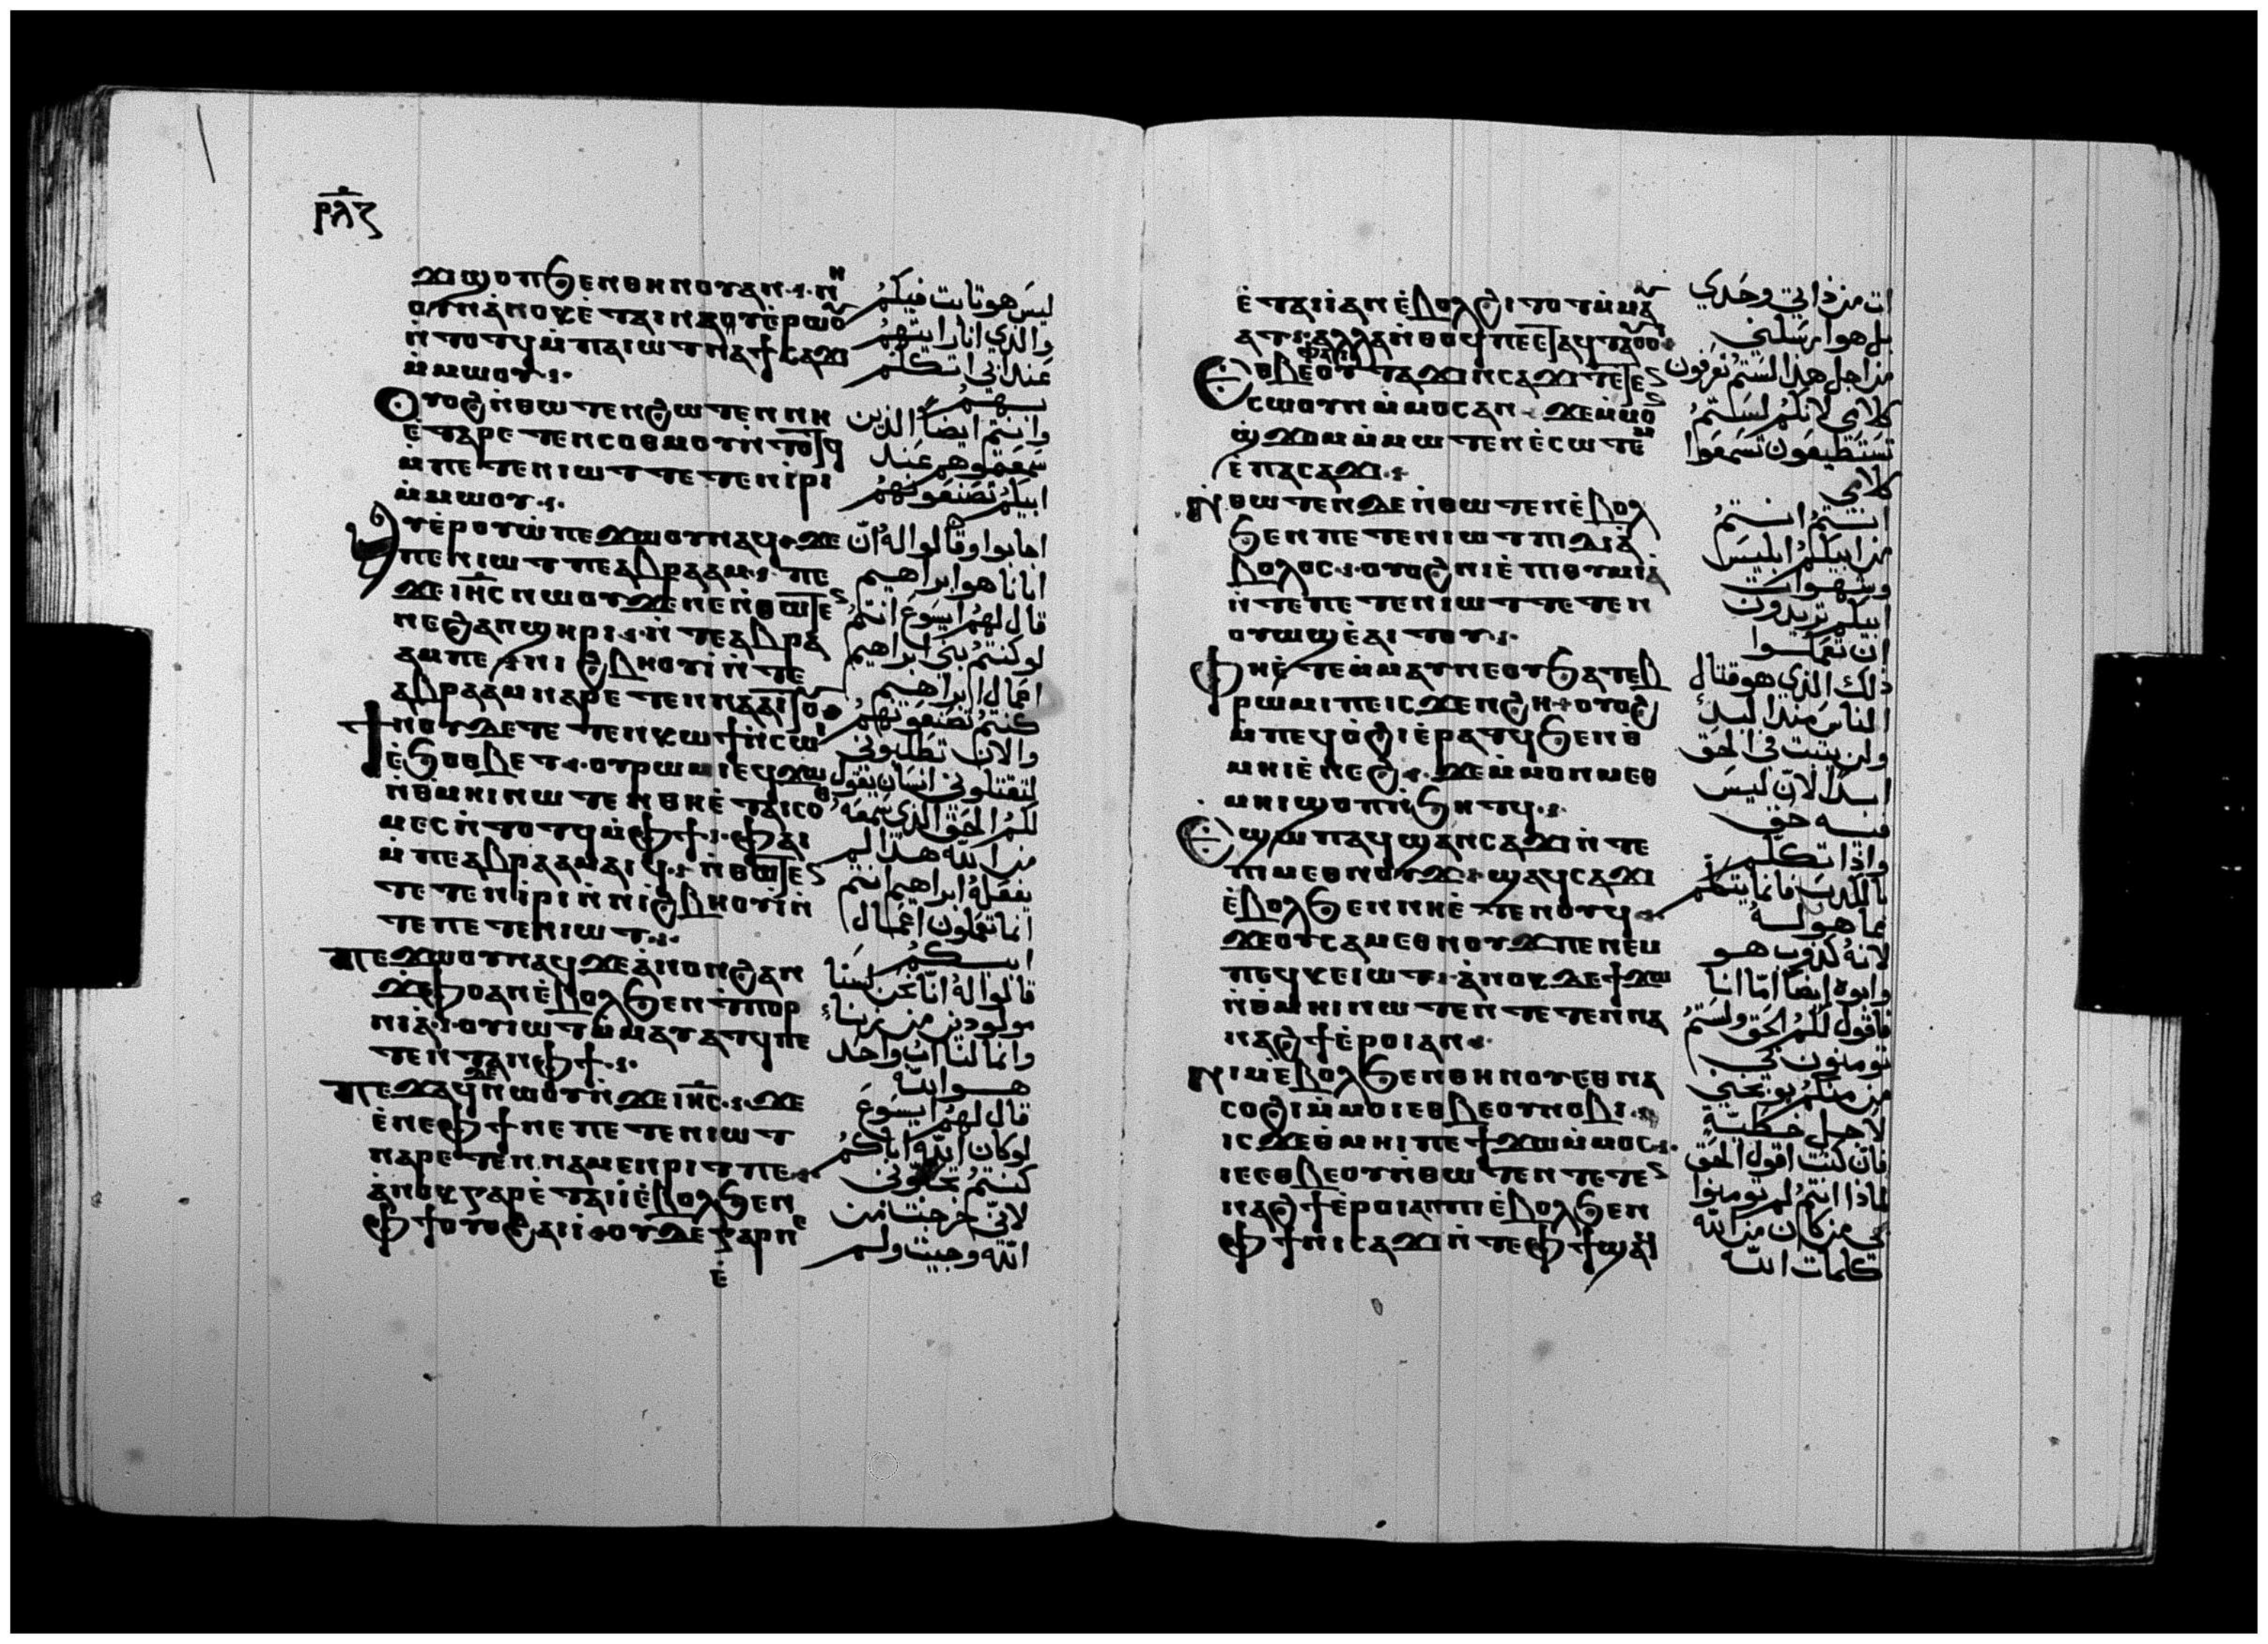 ⲣⲗⲍ
ϫⲓϣⲟⲡϧⲉⲛⲑⲏⲛⲟⲩⲁⲛ
ⲟⲩⲛⲁ̀ⲛⲟⲕⲉ̀ⲧⲁⲓⲛⲁⲩⲉ̀ⲣⲱⲟⲩ
ⲛ̀ⲧⲟⲧϥⲙ̀ⲡⲁⲓⲱⲧⲛⲁϯⲥⲁϫⲓ
ⲙ̀ⲙⲱⲟⲩ
ⲟⲩⲟϩⲛ̀ⲑⲱⲧⲉⲛϩⲱⲧⲉⲛⲛⲏ
ⲉ̀ⲧⲁⲣⲉⲧⲉⲛⲥⲟⲑⲙⲟⲩⲛ̀ⲧⲟⲧϥ
ⲙ̀ⲡⲉⲧⲉⲛⲓⲱⲧⲧⲉⲧⲉⲛⲓ̀ⲣⲓ
ⲙ̀ⲙⲱⲟⲩ
ⲁⲩⲉ̀ⲣⲟⲩⲱ̀ⲡⲉϫⲱⲟⲩⲛⲁϥϫⲉ
ⲡⲉⲛⲓⲱⲧⲡⲉⲁⲃⲣⲁⲁⲙ ⲡⲉ
ϫⲉⲓⲏⲥⲛⲱⲟⲩϫⲉⲛⲉⲛ̀ⲑⲱⲧⲉⲛ
ⲛⲉϩⲁⲛϣⲏⲣⲓ ⲛ̀ⲧⲉⲁⲃⲣⲁ
ⲁⲙⲡⲉ ⲛⲓϩⲃⲏⲟⲩⲓ̀ⲛ̀ⲧⲉ
ⲁⲃⲣⲁⲁⲙⲛⲁⲣⲉⲧⲉⲛⲛⲁⲁⲓⲧⲟⲩ
ϯⲛⲟⲩϫⲉⲧⲉⲧⲉⲛⲕⲱϯⲛ̀ⲥⲱⲓ
ⲉ̀ϧⲟⲑⲃⲉⲧ ⲟⲩⲣⲱⲙⲓⲉϥϫⲱ
ⲛ̀ⲑⲙⲏⲓⲛⲱⲧⲉⲛⲑⲏⲉ̀ⲧⲁⲓⲥⲟⲑ
ⲙⲉⲥⲛ̀ⲧⲟⲧϥⲙ̀ⲫϯ ⲫⲁⲓ
ⲙ̀ⲡⲉⲁⲃⲣⲁⲁⲙⲁⲓϥ ⲛ̀ⲑⲱⲧⲉⲛ
ⲧⲉⲧⲉⲛⲓ̀ⲣⲓⲛ̀ⲛⲓϩⲃⲏⲟⲩⲓ̀ⲛ̀
ⲧⲉⲡⲉⲧⲉⲛⲓⲱⲧ
ⲡⲉϫⲱⲟⲩⲛⲁϥϫⲉⲁ̀ⲛⲟⲛϩⲁⲛ
ϫⲫⲟⲁⲛⲉ̀ⲃⲟⲗϧⲉⲛϯⲡⲟⲣ
ⲛⲓⲁ̀ ⲟⲩⲓⲱⲧⲙ̀ⲙⲁⲩⲁⲧϥⲡⲉ
ⲧⲉⲛⲧⲁⲛⲫϯ
ⲡⲉϫⲁϥⲛⲱⲟⲩⲛ̀ϫⲉⲓⲏⲥ ϫⲉ
ⲉ̀ⲛⲉⲫϯⲡⲉⲡⲉⲧⲉⲛⲓⲱⲧ
ⲛⲁⲣⲉⲧⲉⲛⲛⲁⲙⲉⲛⲣⲓⲧⲡⲉ
ⲁ̀ⲛⲟⲕⲅⲁⲣⲉ̀ⲧⲁⲓⲓ̀ⲉ̀ⲃⲟⲗϧⲉⲛ
ⲫϯⲟⲩⲟϩⲁⲓⲓ̀ ⲟⲩⲇⲉⲅⲁⲣⲛⲉ
ⲉ̀
ليس هو ثابت فيكم
والذي انا رايتهم
عند ابي اتكلم
بهم
وانتم ايضاً الذين
سمعتموهم عند
ابيكم تصنعونهم
اجابوا وقالوا له ان
ابانا هو ابراهيم
قال لهم ايسوع انتم
لو كنتم بني ابراهيم
اعمال ابراهيم
كنتم تصنعونهم
والان تطلبوني
لتقتلوني انسان يقول
لكم الحق الذي سمعه
من الله هذا لم
يفعله ابراهيم انتم
انما تعملون اعمال
ابيكم
قالوا له اننا نحن لسنا
مولودين من زناء
وانما لنا اب واحد
هو الله
قال لهم ايسوع
لو كان الله اباكم
كنتم تحبوني
لاني خرجت من
الله وجيت ولم
ⲉ̀ⲧⲁⲓⲓ̀ⲁⲛⲉ̀ⲃⲟⲗϩⲓⲧⲟⲧⲙ̀ⲙⲁ
ⲁⲧ ⲁⲗⲗⲁⲛ̀ⲑⲟϥⲡⲉⲉⲧⲁϥⲧⲁⲟⲩⲟ
ⲉⲑⲃⲉⲟⲩⲧⲁϫⲓⲛⲥⲁϫⲓⲧⲉⲧⲉⲛ
ⲥⲱⲟⲩⲛⲙ̀ⲙⲟⲥⲁⲛ ϫⲉⲙ̀ⲙⲟ
ϣ̀ϫⲟⲙⲙ̀ⲙⲱⲧⲉⲛⲉ̀ⲥⲱⲧⲉⲙ
ⲉ̀ⲡⲁⲥⲁϫⲓ
ⲛ̀ⲑⲱⲧⲉⲛⲇⲉⲛ̀ⲑⲱⲧⲉⲛⲉ̀ⲃⲟⲗ
ϧⲉⲛⲡⲉⲧⲉⲛⲓⲱⲧⲡⲓⲇⲓⲁ̀
ⲃⲟⲗⲟⲥ ⲟⲩⲟϩⲛⲓⲉ̀ⲡⲓⲑⲩⲙⲓⲁ̀
ⲛ̀ⲧⲉⲡⲉⲧⲉⲛⲓⲱⲧⲧⲉⲧⲉⲛ
ⲟⲩⲱϣⲉ̀ⲁⲓⲧⲟⲩ
ⲫⲏⲉ̀ⲧⲉⲙ̀ⲙⲁⲩⲛⲉⲟⲩϧⲁⲧⲉⲃ
ⲣⲱⲙⲓⲡⲉⲓⲥϫⲉⲛϩⲏ ⲟⲩⲟϩ
ⲙ̀ⲡⲉϥⲟ̀ϩⲓⲉ̀ⲣⲁⲧϥϧⲉⲛⲑ̀
ⲙⲏⲓⲉ̀ⲛⲉϩ ϫⲉⲙ̀ⲙⲟⲛⲙⲉⲑ
ⲙⲏⲓϣⲟⲡⲛ̀ϧⲏⲧϥ
ⲉϣⲱⲡⲁϥϣⲁⲛⲥⲁϫⲓⲛ̀ⲧⲉ
ⲡⲙⲉⲑⲛⲟⲩϫ ϣⲁϥⲥⲁϫⲓ
ⲉ̀ⲃⲟⲗϧⲉⲛⲛⲏⲉ̀ⲧⲉⲛⲟⲩϥ
ϫⲉⲟⲩⲥⲁⲙⲉⲑⲛⲟⲩϫⲡⲉⲛⲉⲙ
ⲡⲉϥⲕⲉⲓⲱⲧ ⲁ̀ⲛⲟⲕⲇⲉϯϫⲱ
ⲛ̀ⲑⲙⲏⲓⲛⲱⲧⲉⲛⲧⲉⲧⲉⲛⲛⲁ
ⲛⲁϩϯⲉ̀ⲣⲟⲓⲁⲛ
ⲛⲓⲙⲉ̀ⲃⲟⲗϧⲉⲛⲑⲏⲛⲟⲩⲉⲑⲛⲁ
ⲥⲟϩⲓⲙ̀ⲙⲟⲓⲉⲑⲃⲉⲟⲩⲛⲟⲃⲓ
ⲓⲥϫⲉⲑ̀ⲙⲏⲓⲡⲉϯϫⲱⲙ̀ⲙⲟⲥ
ⲓⲉⲉⲑⲃⲉⲟⲩⲛ̀ⲑⲱⲧⲉⲛⲧⲉⲧⲉⲛ
ⲛⲁϩϯⲉ̀ⲣⲟⲓⲁⲛⲡⲓⲉ̀ⲃⲟⲗϧⲉⲛ
ⲫϯⲛⲓⲥⲁϫⲓⲛ̀ⲧⲉⲫϯϣⲁϥ
ات من ذاتي وحدي
بل هو ارسلني
من اجل هذا لستم تعرفون
كلامي لانكم لستم
تستطيعون تسمعوا
كلامي
انتم انتم
من ابيكم ابليس
وشهوات
ابيكم تريدون
ان تعملوا
ذلك الذي هو قتال
الناس منذ البدئ
ولن يثبت في الحق
ابداً لان ليس
فيه حق
واذا تكلم
بالكذب فانما يتكلم
بما هو له
لانه كذوب هو
وابوه ايضاً امّا انا
فاقول لكم الحق ولستم
تومنون بي
من منكم يوبخني
لاجل خطية
فان كنت اقول الحق
لماذا انتم لم تومنوا
بي من كان من الله
كلمات الله